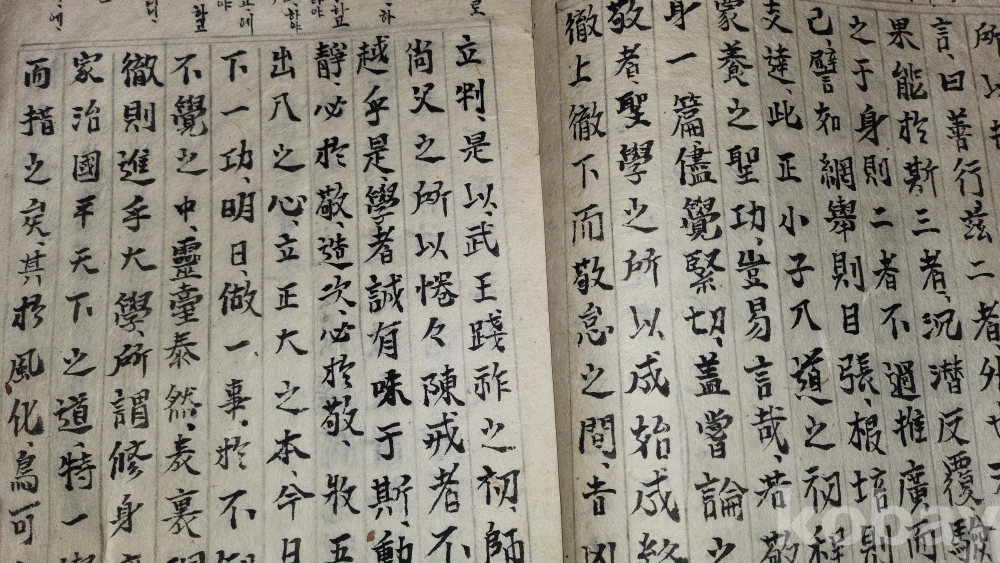 所以
言、曰善行、玆二者、外
果能於斯三者、沉潛反覆、驗
之于身則二者不過推廣而
己、譬如網擧則目張、根培則
支達、此正小子入道之初程
蒙養之聖功、豈易言哉、若敬
身一篇、儘覺緊切、蓋嘗論之
敬者聖學之所以成始成終
徹上徹下而敬怠之間、吉凶
立判、是以、武王踐祚之初、師
尚父之所以惓々陳戒者不
越乎是、學者誠有味于斯、動
靜、必於敬、造次、必於敬、收
出入之心、立正大之本、今日
下一功、明日、做一事、於不
不覺之中、靈臺泰然、表裏
徹則進乎大學、所謂修身
家治國平天下之道、特一
而指之矣、其於風化、焉可
kobay